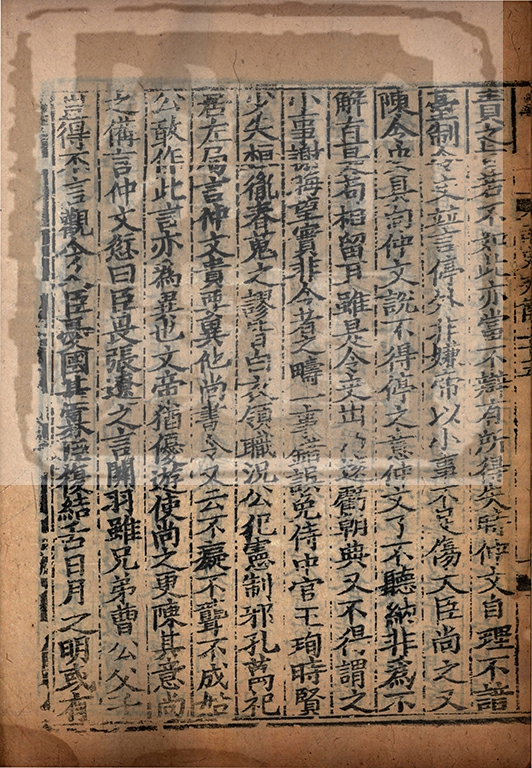 責之亡若不如此亦當不辯有所得矣時仲文自理不諳
臺制令文並言停外非嫌帝以小事不足傷大臣尚之又
陳令具向仲文說不得停之意仲文了不聽納非為不
解直是苟相留耳雖是令史出乃遂虧朝典又不得謂之
小事謝晦望實非今者之疇一事錯誤免侍中官王珣時賢
少失桓徹春蒐之謬皆白衣領職況公犯憲制邪孔萬祀
居左局言仲文貴要異他尚書令又云不癡不聾不成姑
公敢作此言亦為異也文帝猶優遊使尚之更陳其意尚
之備言仲文愆曰臣畏張遼之言關羽雖兄弟曹公父子
豈得不言觀今人臣憂國甚寡復結舌日月之明或有